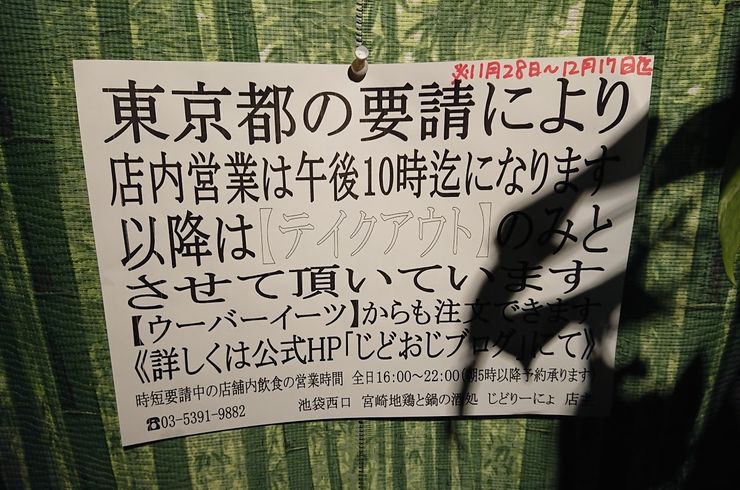 ※11月28日〜12月17日迄
東京都の要請により
店内営業は午後10時迄になります
以降は【テイクアウト】のみと
させて頂いています
【ウーバーイーツ】からも注文できます
《詳しくは公式HP「じどおじブログ」にて》
時短要請中の店舗内飲食の営業時間 全日16:00〜22:00(朝5時以降予約承ります)
☎03-5391-9882
池袋西口 宮崎地鶏と鍋の酒処 じどりーにょ 店主